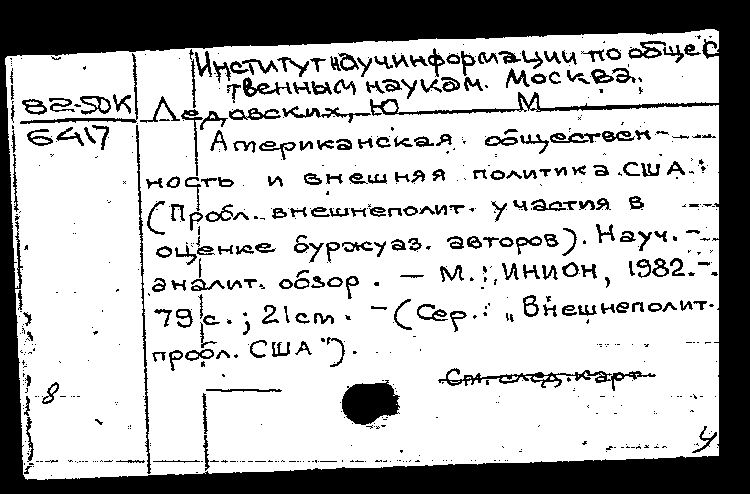 Институт научинформации по общес
твенным наукам. Москва.
82-50К
6417
Ледовских, Ю М
Американская обществен-
ность и внешняя политика США.:
(Пробл. внешнеполит. участия в
оценке буржуаз. авторов). Науч.-
аналит. обзор. — М.: ИНИОН, 1982.-
79 с.; 21 cm. - (Сер.: „Внешнеполит.
пробл. США").
См. след. карт
8
у